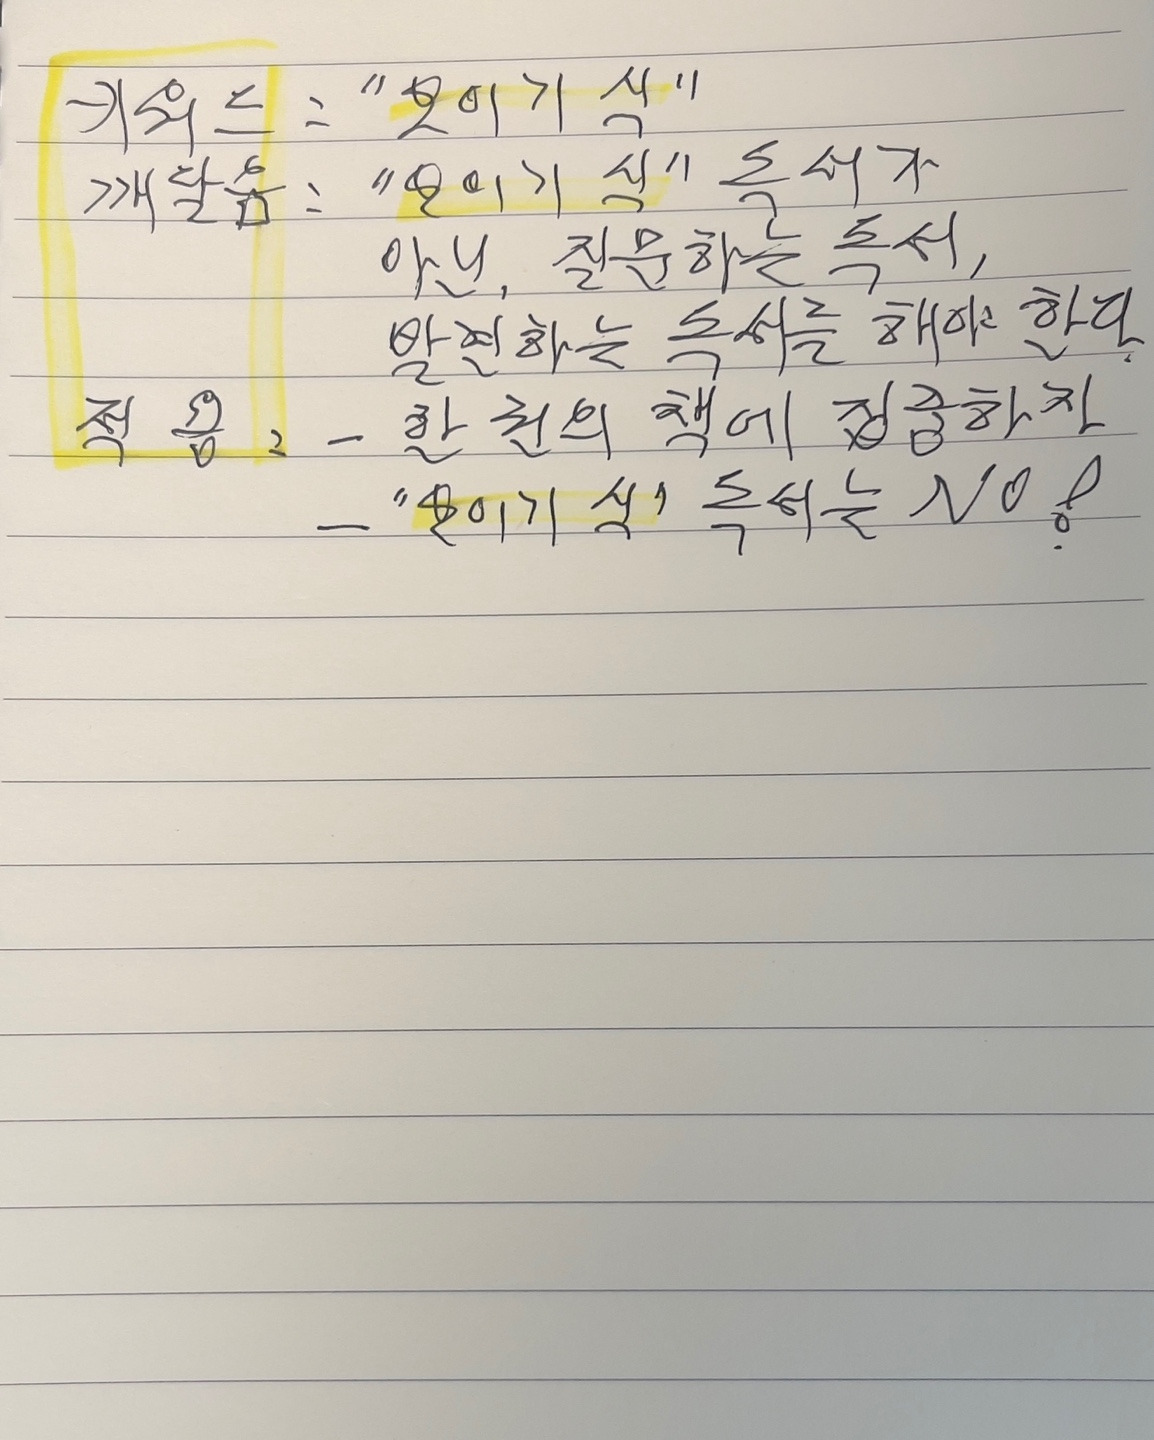 키워드 : "보이기 식"
깨달음 : "보이기 식" 독서가
아닌, 질문하는 독서,
발견하는 독서를 해야 한다.
적용 : - 한 권의 책에 집중하자
- "보이기 식" 독서는 NO!